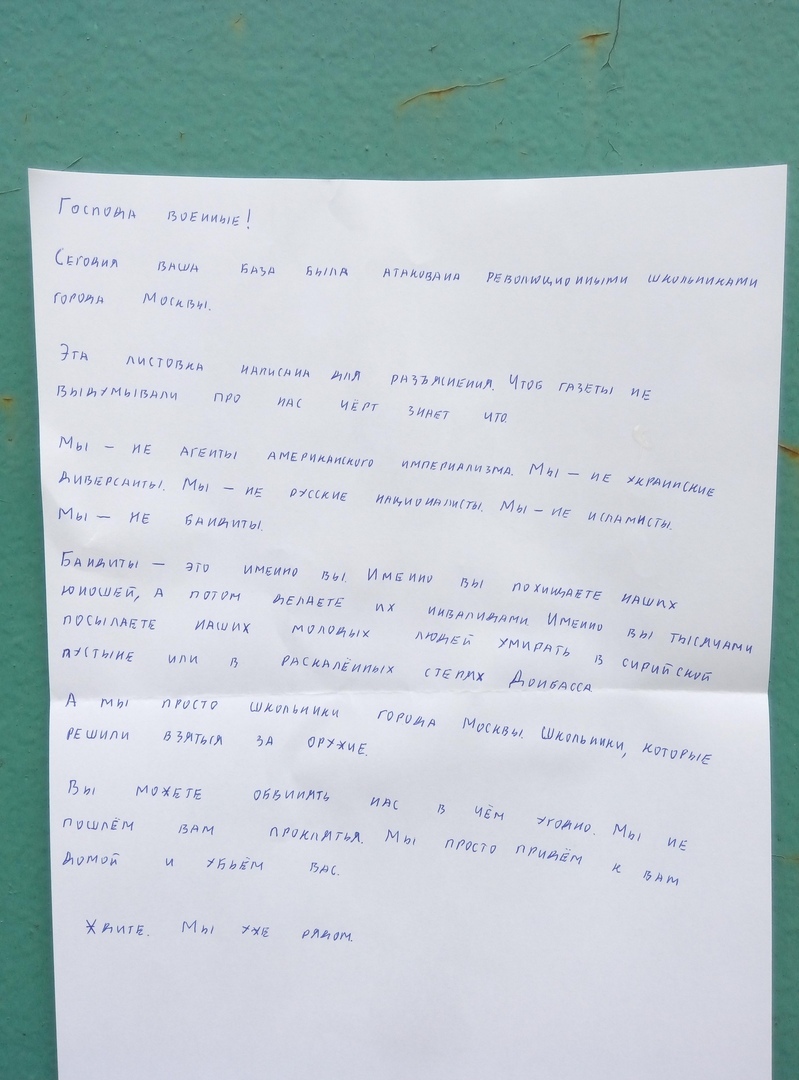 Господа военные!
Сегодня ваша база была атакована революционными школьниками
города Москвы.
Эта листовка написана для разъяснения. Чтоб газеты не
выдумывали про нас чёрт знает что.
Мы — не агенты американского империализма. Мы — не украинские
диверсанты. Мы — не русские националисты. Мы — не исламисты.
Мы — не бандиты.
Бандиты — это именно вы. Именно вы похищаете наших
юношей, а потом делаете их инвалидами. Именно вы тысячами
посылаете наших молодых людей умирать в сирийской
пустыне или в раскалённых степях Донбасса
А мы просто школьники города Москвы. Школьники, которые
решили взяться за оружие.
Вы можете обвинять нас в чём угодно. Мы не
пошлём вам проклятья. Мы просто придём к вам
домой и убьём вас.
Ждите. Мы уже рядом.